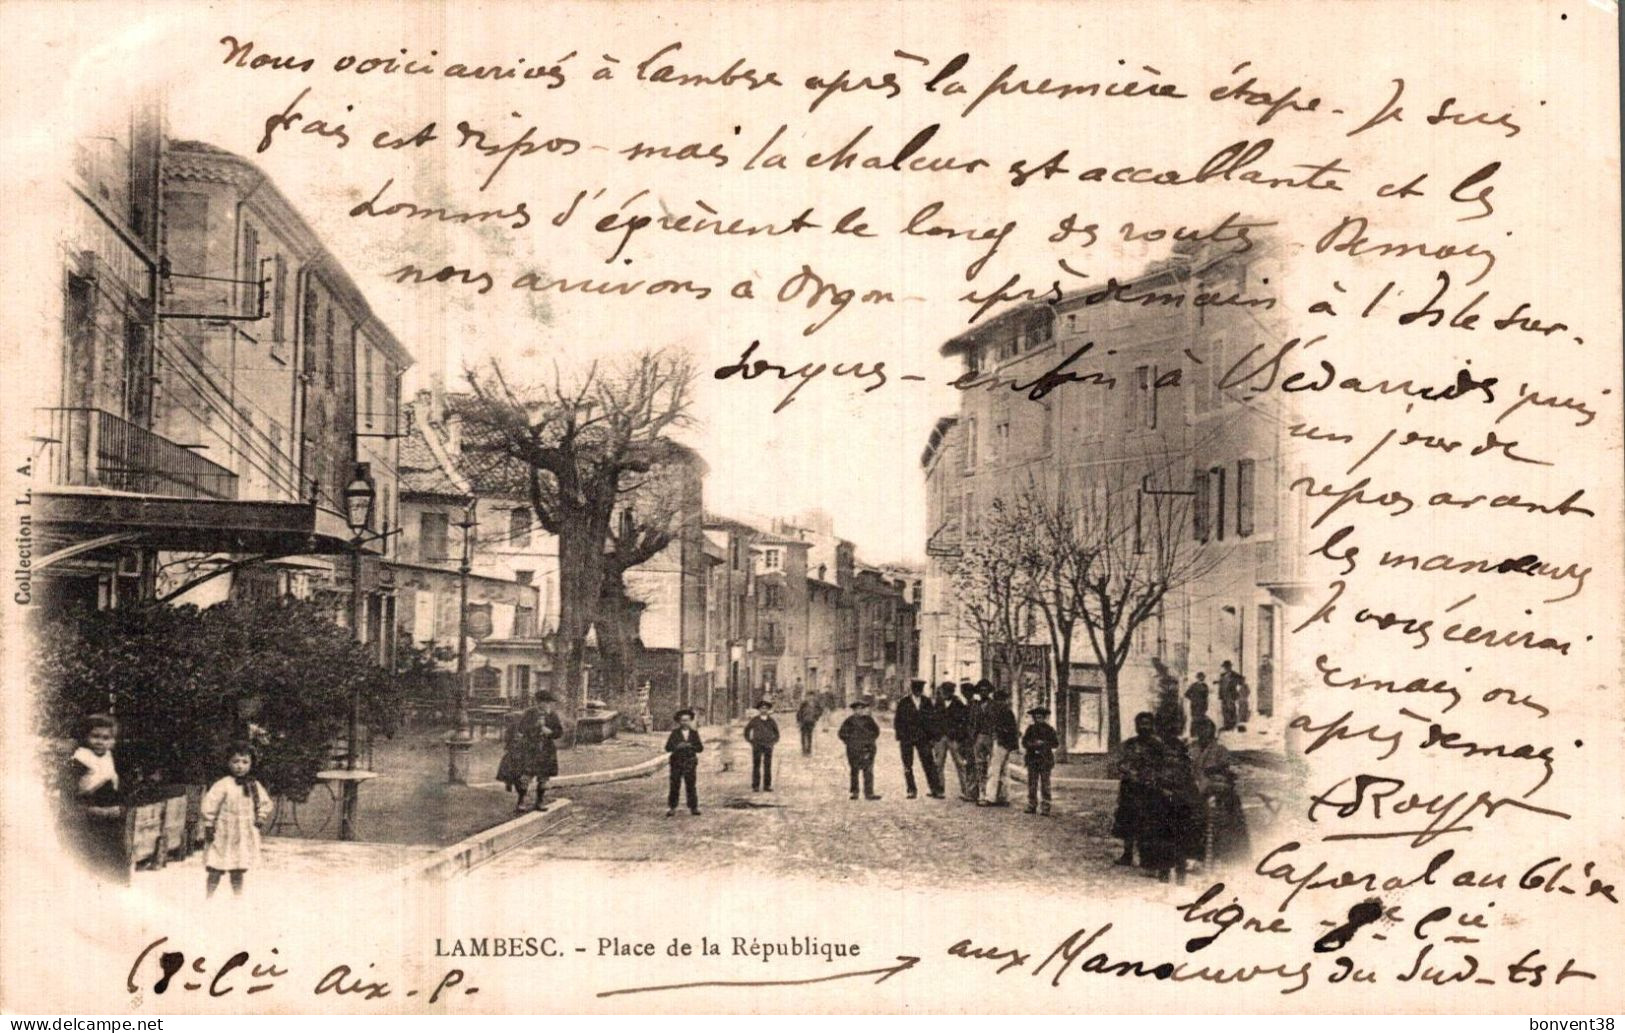 Nous voici arrivés à Lambesc après la première étape - Je suis
frais est dispos - mais la chaleur est accablante et les
hommes s'égrènent le long des routes - Demain
nous arrivons à Orgon - après demain à l'Isle sur-
Sorgues - enfin à Bédarrides puis
un jour de
repos avant
les manœuvres
Je vous écrirai
demain ou
après demain
Royer
Caporal au 61e de
ligne - 8e Cie
aux Manœuvres du Sud-Est
(8e Cie Aix - P. -
LAMBESC. - Place de la République
Collection L. A.
bonvent38